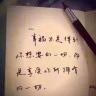 幸福不是得到
你想要的一切 而
是享受你所拥有
的一切